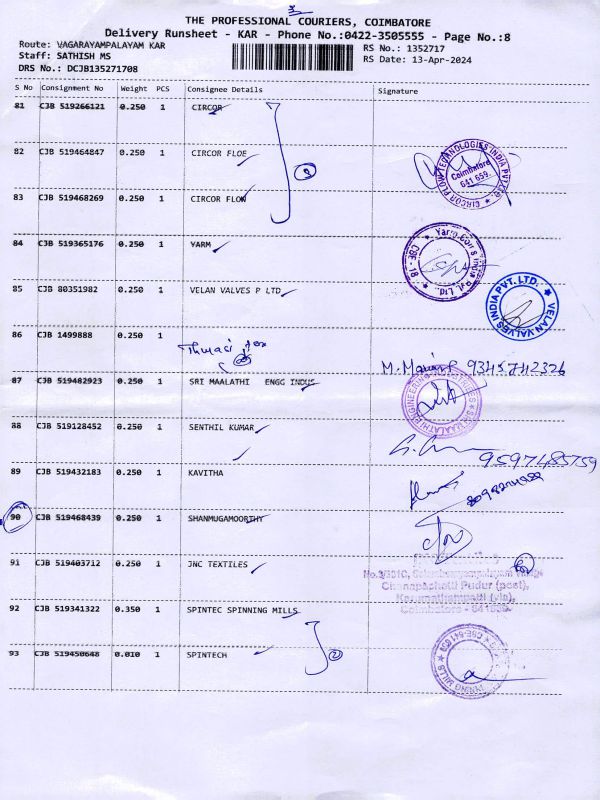 THE PROFESSIONAL COURIERS, COIMBATORE
Delivery Runsheet - KAR - Phone No.:0422-3505555 - Page No.:8
Route: VAGARAYAMPALAYAM KAR
RS No.: 1352717
Staff: SATHISH MS
RS Date: 13-Apr-2024
DRS No.: DCJB135271708
S No Consignment No Weight PCS Consignee Details Signature
81 CJB 519266121 0.250 1 CIRCOR
82 CJB 519464847 0.250 1 CIRCOR FLOE
CIRCOR FLOW TECHNOLOGIES INDIA PVT.
Coimbatore
641 659.
83 CJB 519468269 0.250 1 CIRCOR FLOW
3
84 CJB 519365176 0.250 1 YARM
85 CJB 80351982 0.250 1 VELAN VALVES P LTD
VELAN VALVES INDIA PVT. LTD.
86 CJB 1499888 0.250 1
9345742326
87 CJB 519482923 0.250 1 SRI MAALATHI ENGG INDUS
88 CJB 519128452 0.250 1 SENTHIL KUMAR
9597485759
89 CJB 519432183 0.250 1 KAVITHA
90 CJB 519468439 0.250 1 SHANMUGAMOORTHY
91 CJB 519403712 0.250 1 JNC TEXTILES
Channpachetti Pudur (post),
Coimbatore - 641659.
92 CJB 519341322 0.350 1 SPINTEC SPINNING MILLS
93 CJB 519450648 0.010 1 SPINTECH
2